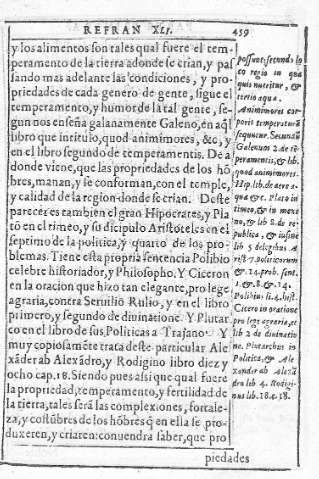 REFRAN XLI. 459
y los alimentos son tales qual fuere el tem-
peramento de la tierra adonde se crian, y pas
sando mas adelante las condiciones, y pro-
priedades de cada genero de gente, sigue el
temperamento, y humor de la tal gente, se-
gun nos enseña galanamente Galeno, en aq̃l
libro que intitulo, quod animimores, &c, y
en el libro segundo de temperamentis. De a
donde viene, que las propriedades de los hõ
bres, manan, y se conforman, con el temple,
y calidad de la region donde se crian. Deste
parecer es tambien el gran Hipocrates, y Pla
tõ en el timeo, y su dicipulo Aristoteles en el
septimo de la politica, y quarto de los pro-
blemas. Tiene esta propria sentencia Polibio
celebre historiador, y Philosopho. Y Ciceron
en la oracion que hizo tan elegante, pro lege
agraria, contra Seruilio Rulio, y en el libro
primero, y segundo de diuinatione. Y Plutar
co en el libro de sus Politicas a Trajano. Y
muy copiosamẽte trata deste particular Ale
xãder ab Alexãdro, y Rodigino libro diez y
ocho cap. 18. Siendo pues assi que qual fuere
la propriedad, temperamento, y fertilidad de
la tierra, tales serã las complexiones, fortale-
za, y costũbres de los hõbres q̃ en ella se pro-
duxeren, y criaren: conuendra saber, que pro
piedades
possunt secundũ lo
co regio in qua
quis nutritur, &
tertio aqua.
Animimores cor
poris temperaturã
sequutur. Secundũ
Galenum 2. de tẽ
peramentis, & lib.
quod animimores.
Hip. lib. de aere a-
qua & re. Plato in
timeo, & in meno
ne, & lib 8. de re-
publica, & in fine
lib 5 de legibus A
rist 7. politicorum
& .14. prob. sent.
1. & 8. & 14.
Polibius li. 4. hist.
Cicero in oratione
pro lege agraria, et
lib 2 de diuinatio
ne. Plutarchus in
Politica, & Ale
xander ab Alexã
dro lib 4. Rodigi-
nus lib. 18. c. 18.